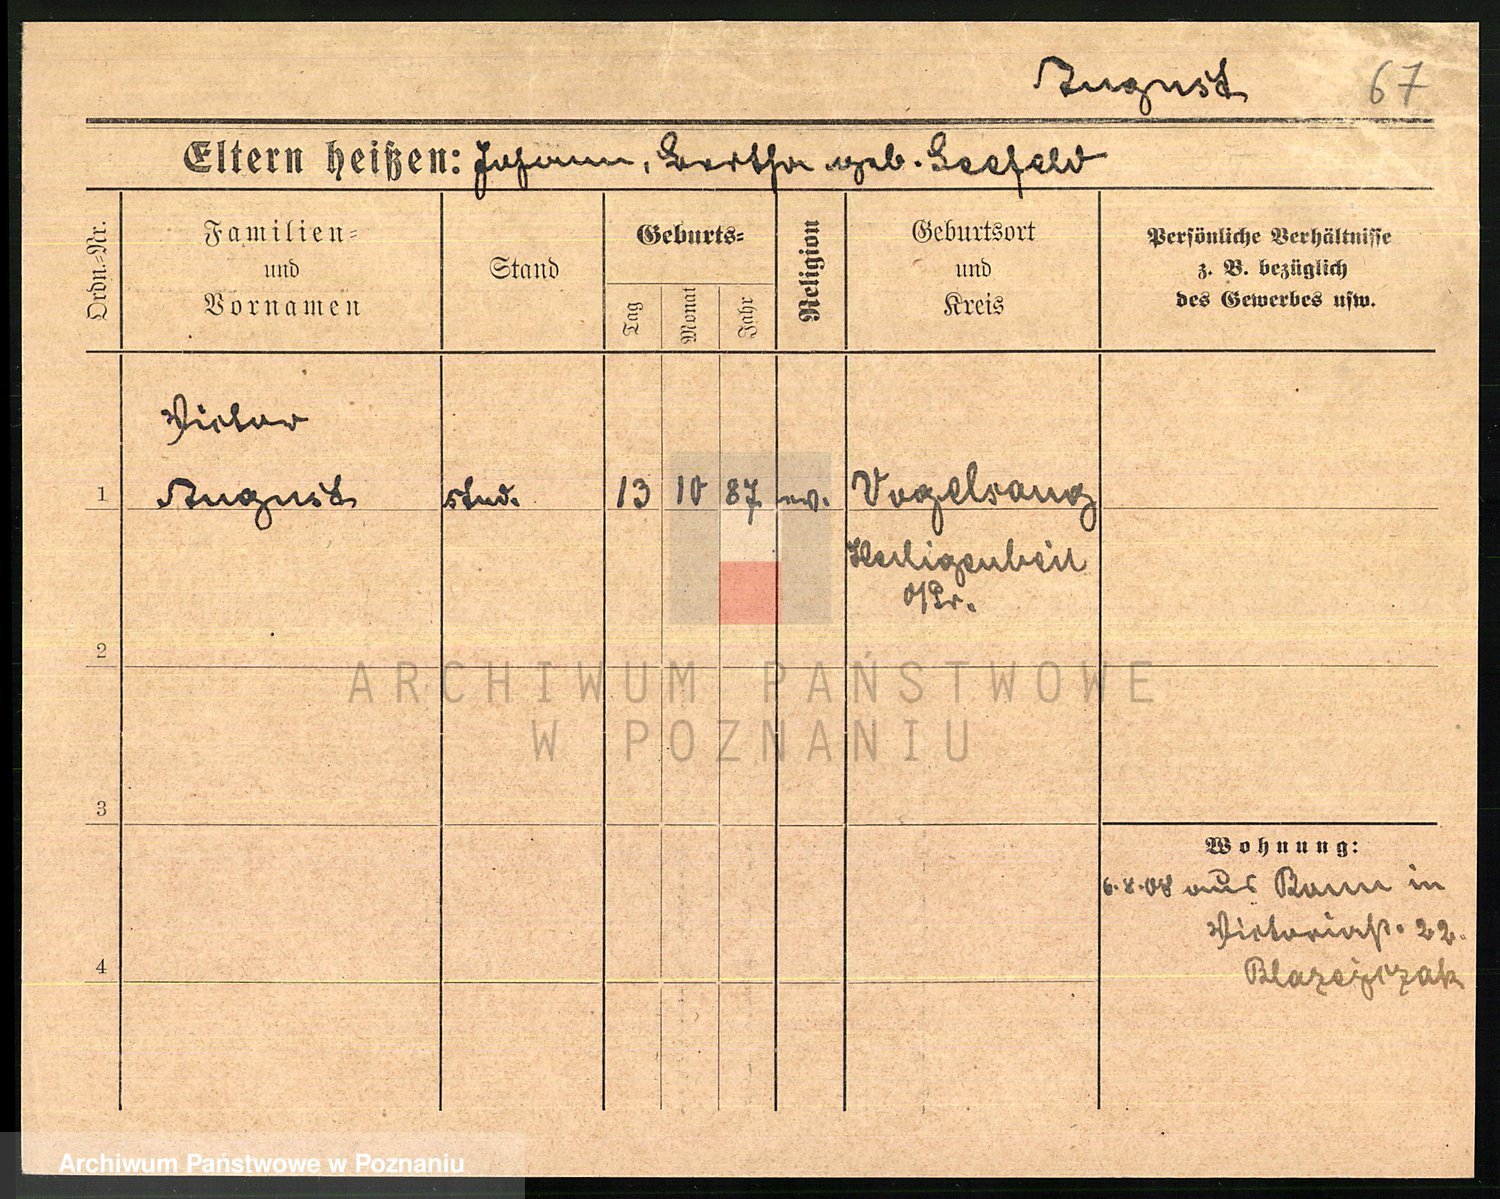 August 67
Eltern heißen: Johann, Bertha geb. Seefeld
Ordn.-Nr.
Familien-
und
Vornamen
Stand
Geburts-
Tag
Monat
Jahr
Religion
Geburtsort
und
Kreis
Persönliche Verhältnisse
z. B. bezüglich
des Gewerbes usw.
Victor
1 August stud. 13 10 87 ev. Vogelsang
Heiligenbeil
O/Pr.
2
ARCHIWUM PAŃSTWOWE
W POZNANIU
3
Wohnung:
6.8.08 aus Bonn in
Victoriastr. 22.
4 Blazejczak
Archiwum Państwowe w Poznaniu